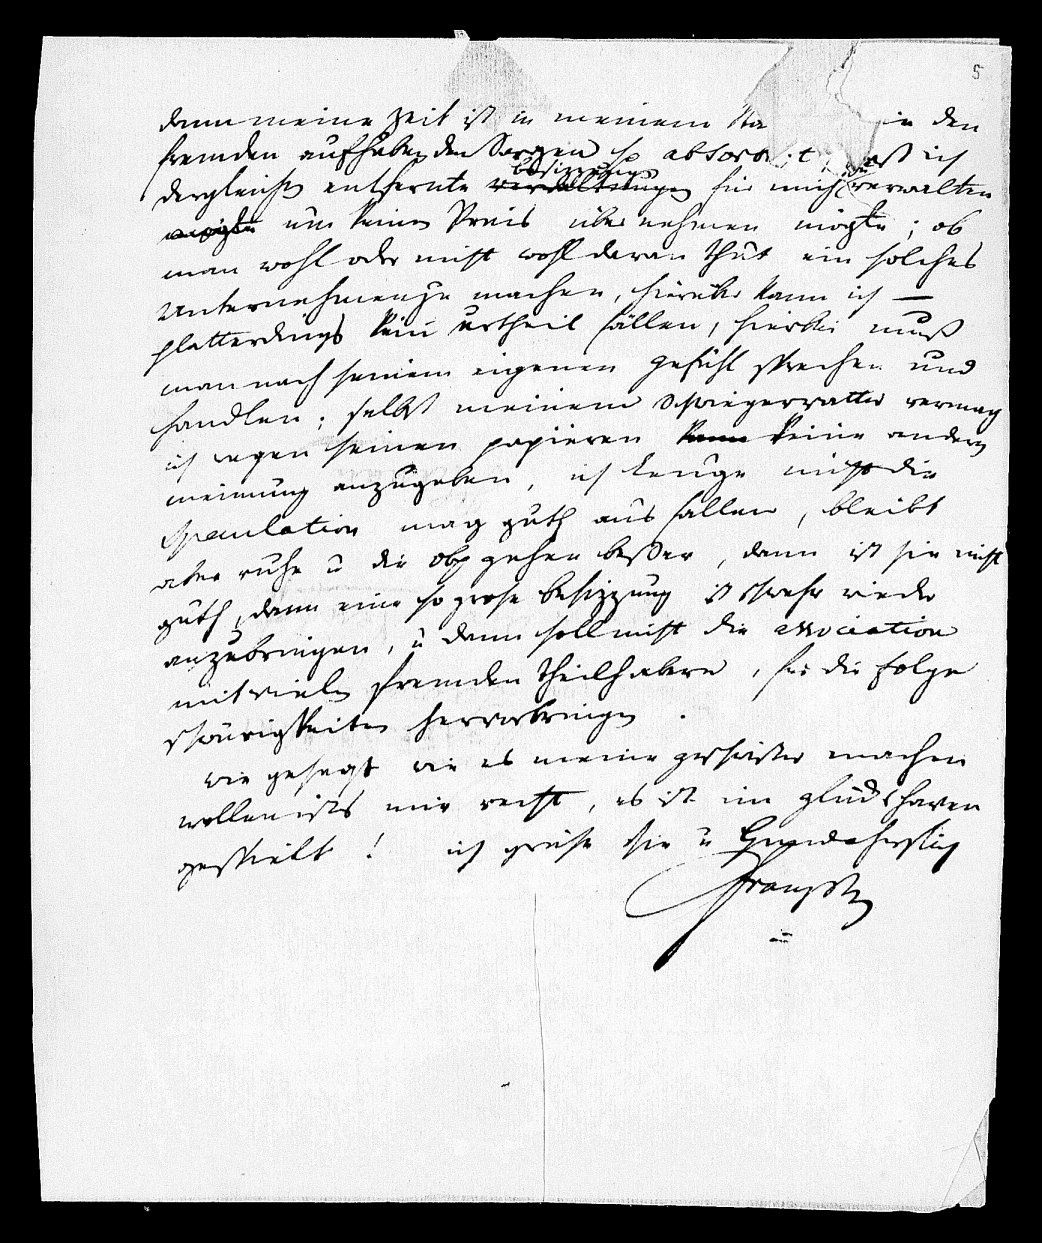 5
denn meine Zeit ist in meinem in den
fremden aufhabenden Sorgen so absorbirt, daß ich
dergleichen entfernte besizzungen für mich zu verwalten
um keinen Preis übernehmen mögte; ob
man wohl oder nicht wohl daran thut ein solches
Unternehmen zu machen, hierüber kann ich —
platterdings kein urtheil fällen, hierbei muß
man nach seinem eigenen gefühl sprechen und
handlen; selbst meinem Schwiegervatter vermag
ich wegen seinen papieren kann keine andere
meinung anzugeben, ich leugne nicht die
Speculation mag guth ausfallen, bleibt
aber ruhe u die obl gehen besser, dann ist sie nicht
guth, denn eine so grose besizzung ist schwehr wieder
anzubringen, u dann soll nicht die association
mit vielen fremden theilhabern, für die folge
schwürigkeiten hervorbringen.
wie gesagt wie es meine geschwister machen
wollen ists mir recht, es ist im glückshaven
gespielt! ich grüse Sie u herzlich
Franz